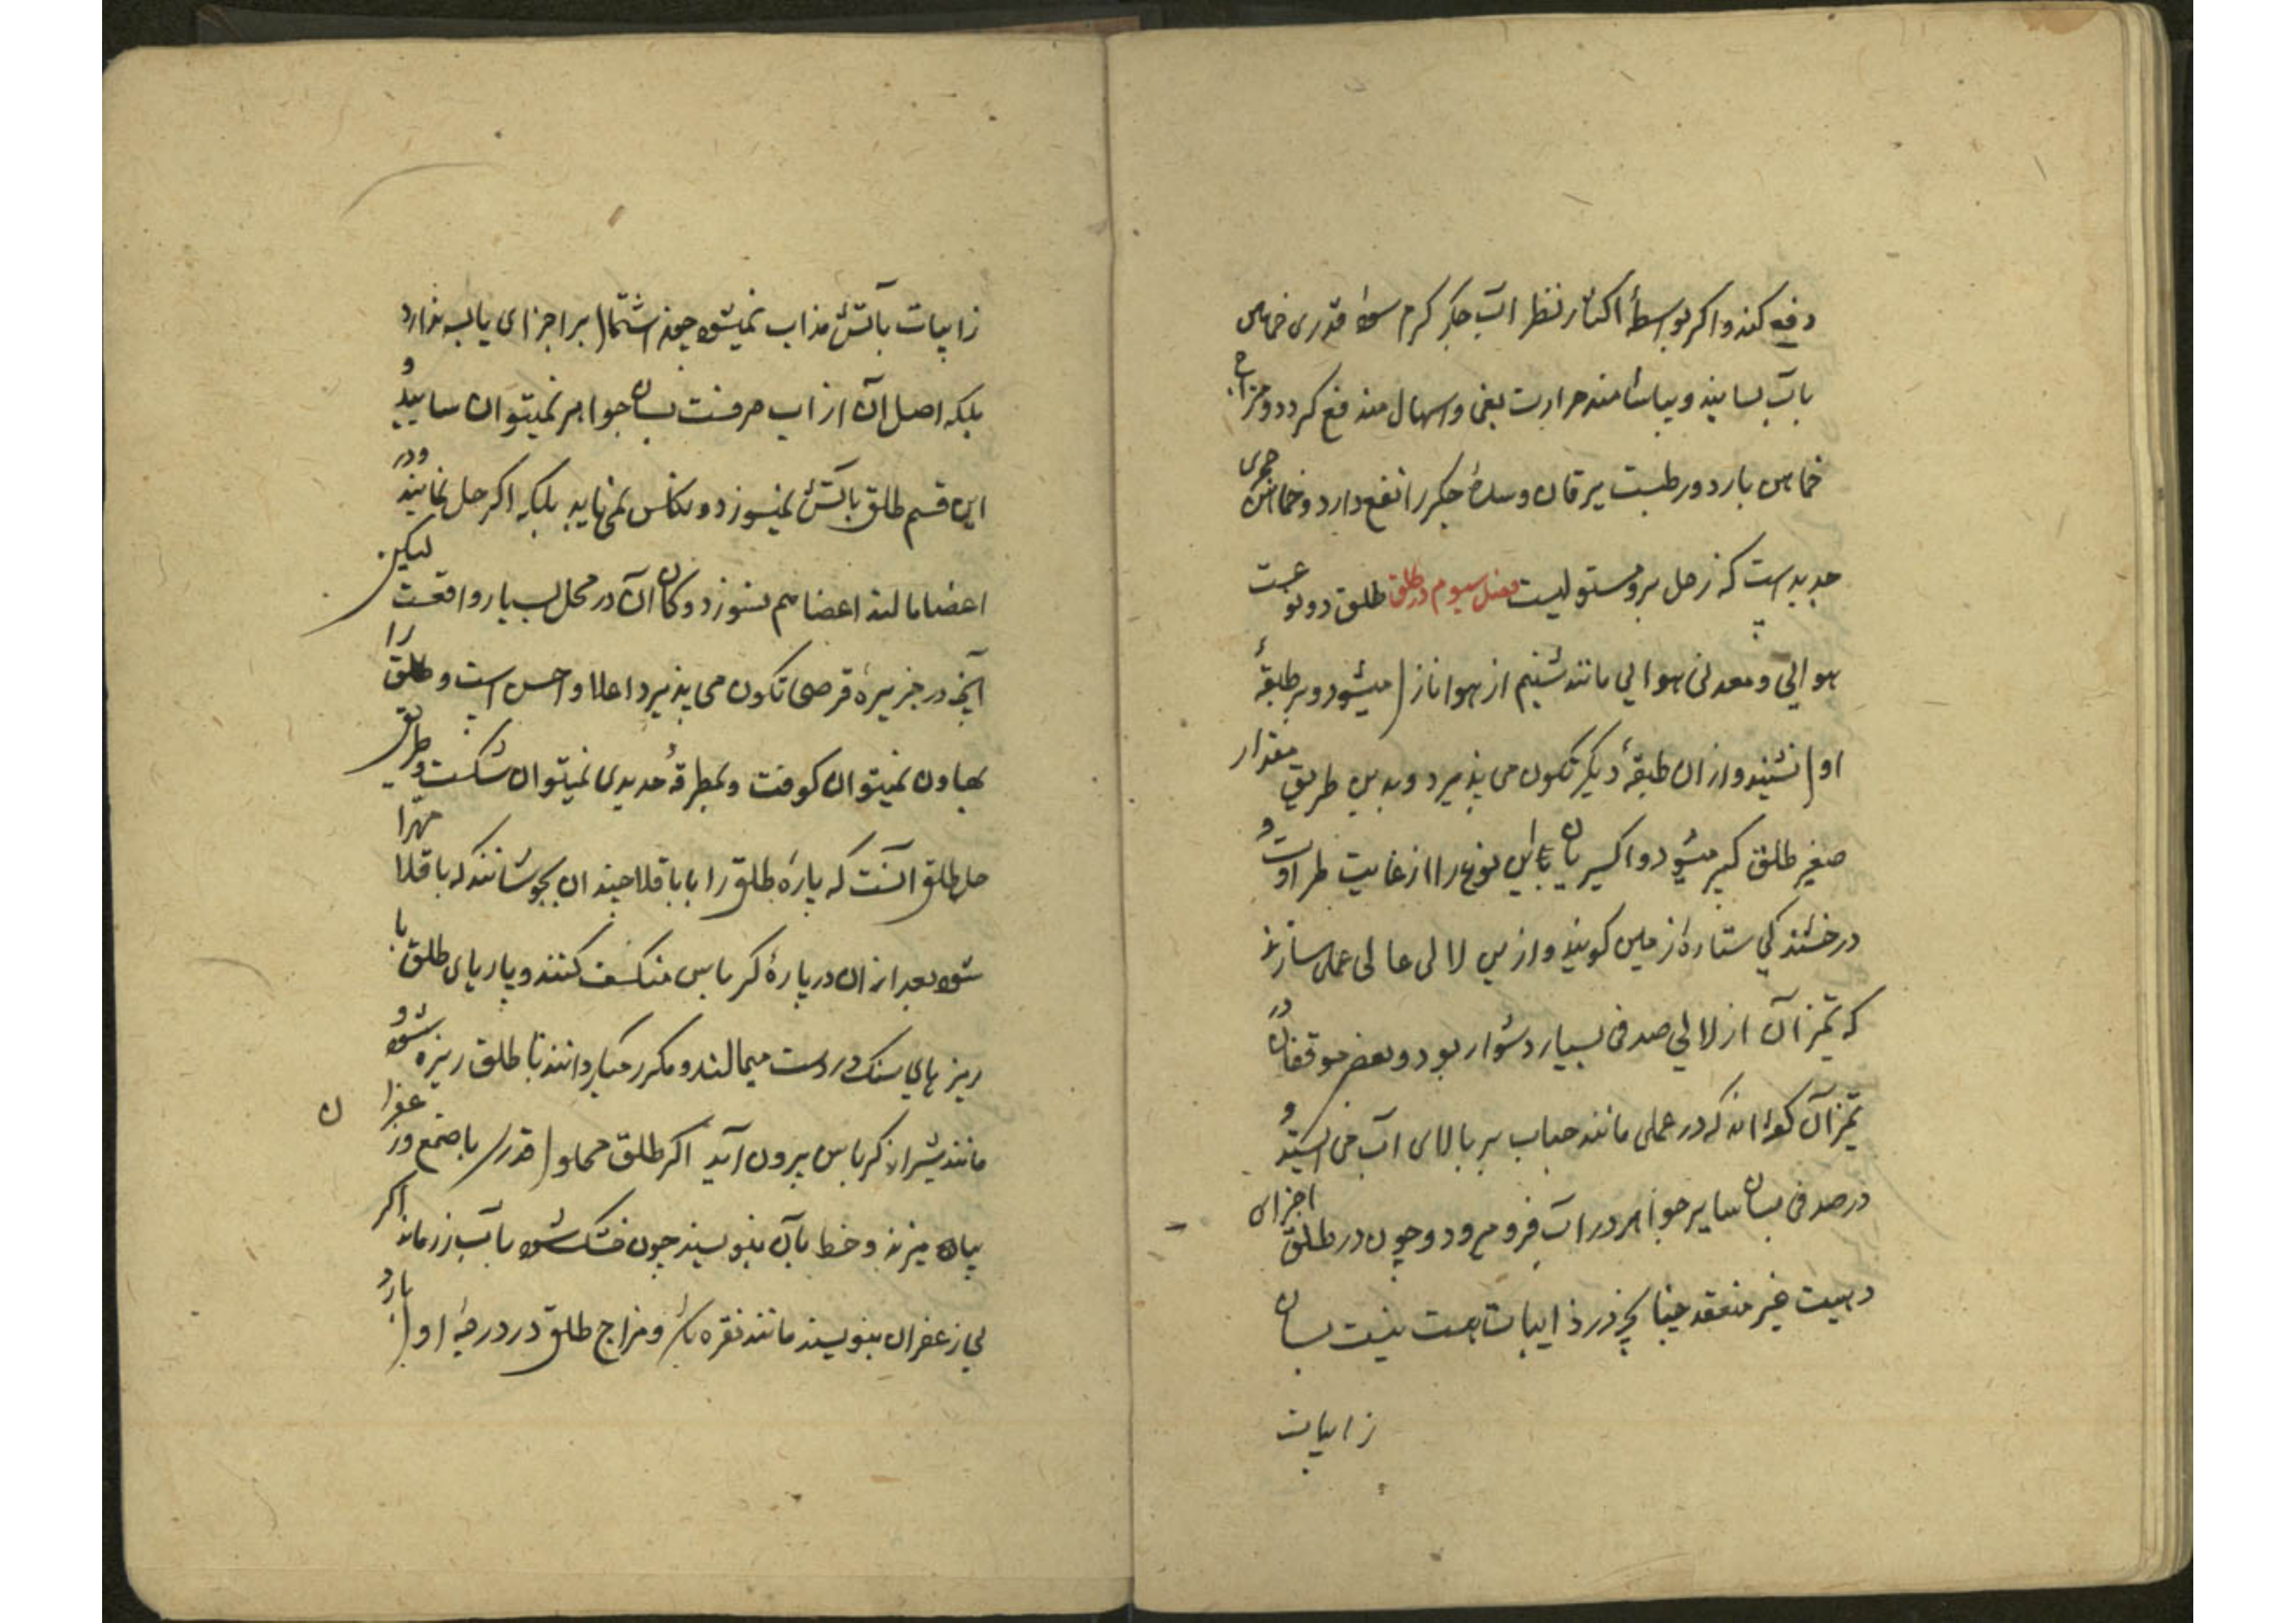 دفع کند و اکر بواسطهٔ اکثار نظر آب جکر کرم شود قدری خماهن
بآب بسایند و بیاشامند حرارت بغی و اسهال مند فع کردد و مزاج
خماهن بارد و رطبست یرقان و سدهٔ جکر را نفع دارد و خماهن حجری
حدیدست که زحل برو مستولیست فصل سیوم در طلق طلق دو نوعست
هوائی و معدنی هوائی مانند شبنم از هوا نازل میشود و بر طبقهٔ
اول نشیند و از ان طبقهٔ دیکر تکون می پذیرد و بدین طریق مقدار
صغیر طلق کبیر میشود و اکسیریان این نوع را از غایت طراوت و
درخشندکی ستارهٔ زمین کویند و ازین لالی عالی عمل سازند
که تمیز آن از لالی صدفی بسیار دشوار بود و بعضی موقفان در
تمیز آن کواند که در عملی مانند حباب بر بالای آب می ایستد و
درصدفی بسان سایر جواهر در آب فرو می رود و چون در طلق اجزای
دهنیت غیر منعقد چنانچه در ذایبات هست نیست بسان
زایبات
زایبات بآتش مذاب نمیشود چون اشتمال بر اجزای یابسه ندارد
بلکه اصل آن از آب صرفست بسان جواهر نمیتوان سایید و
این قسم طلق بآتش نمیسوزد و تکلس نمی یابد بلکه اکر حل نمایند و در
اعضا مالند اعضا هم نسوزد و کان آن در محل بسیار واقعست لیکن
آنچه در جزیرهٔ قرصی تکون می پذیرد اعلا و احسن است و طلق را
بهاون نمیتوان کوفت و بمطرقهٔ حدیدی نمیتوان شکست و طریق
حل طلق آنست که پارهٔ طلق را با باقلا چندان بجوشانند که باقلا مهرا
شود بعد از ان در پارهٔ کرباس منکسف کنند و پاریای طلق با
ریزهای سنک در دست میمالند و مکرر میکردانند تا طلق ریزه شود و
مانند شیر از کرباس بیرون آید اکر طلق محلول قدری با صمغ و زعفران
بیامیزند و خط بآن بنویسند چون خشک شود بآب زر ماند اکر
بی زعفران بنویسند مانند نقره باشد و مزاج طلق در درجهٔ اول بارد